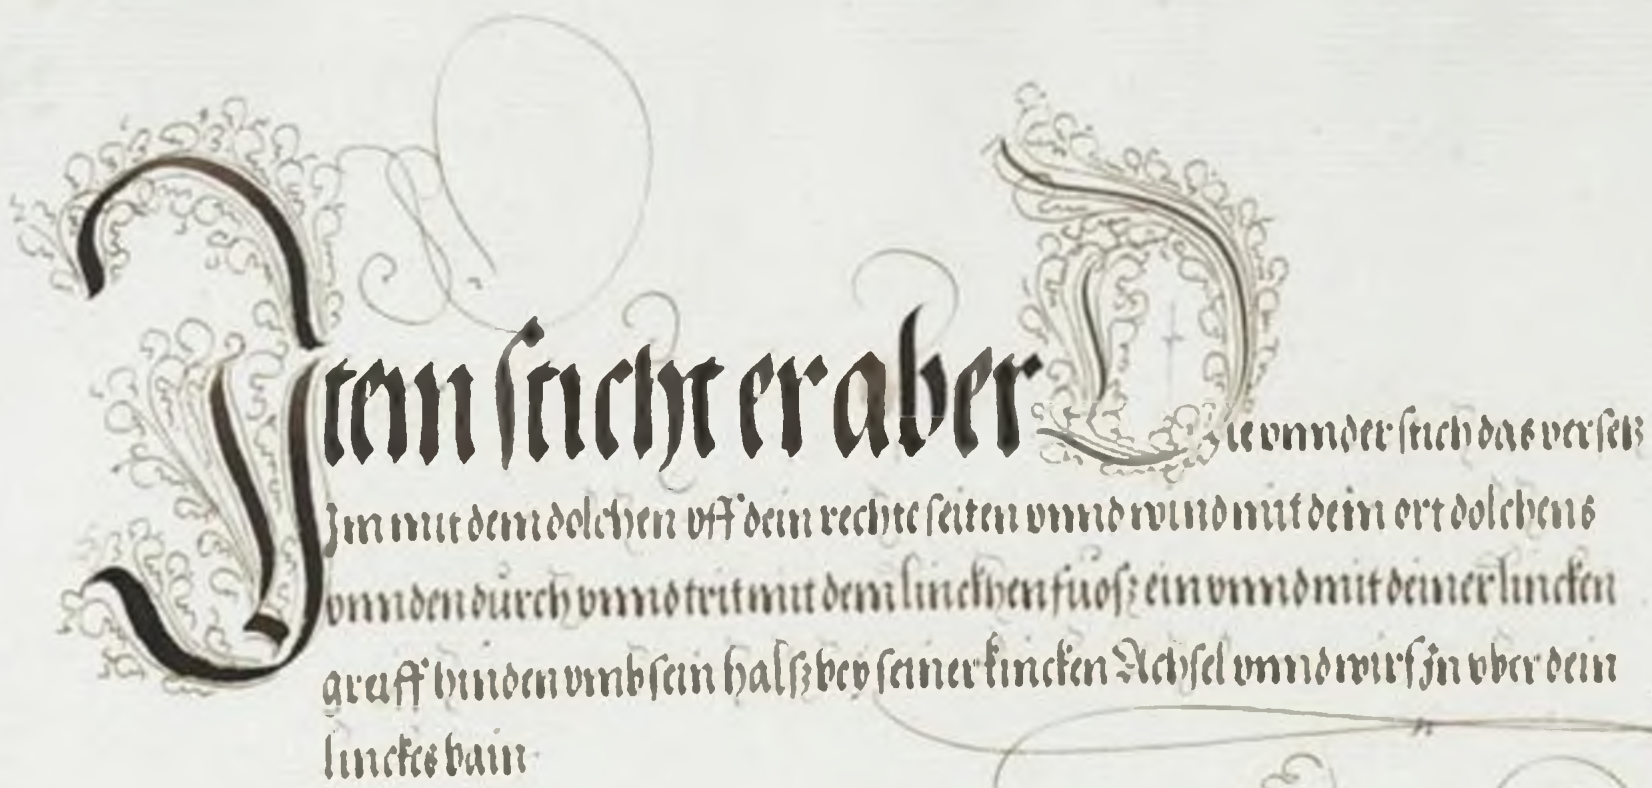 Item sticht er aber Die vnnder stich das versetz
Im mit dem dolchen vff dein rechte seiten vnnd wind mit dein ort dolchens
vnnden dúrch vnnd trit mit dem linckhen fúosz ein vnnd mit deiner lincken
greiff hinden vmb sein halsz bey seiner lincken Achsel vnnd wirf jn vber dein
linckes bain